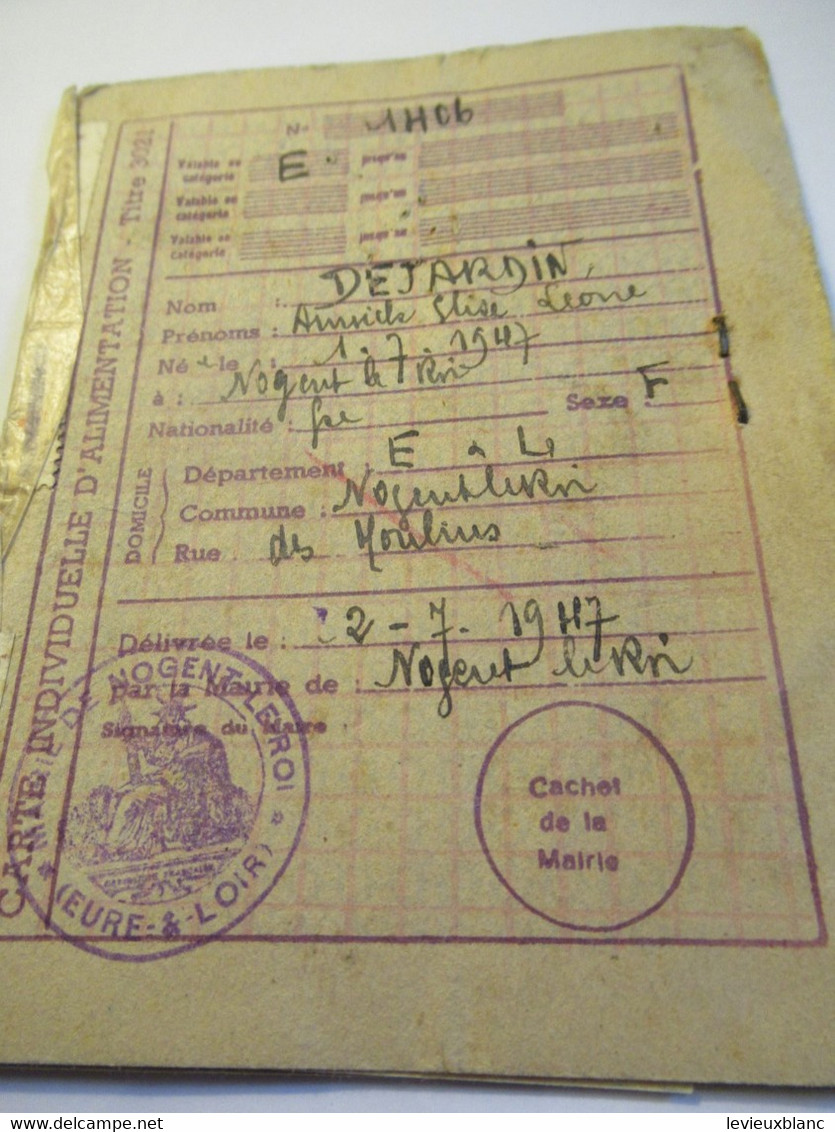 CARTE INDIVIDUELLE D'ALIMENTATION - Titre 3021
N° 1406
Valable en catégorie E jusqu'au
Valable en catégorie jusqu'au
Valable en catégorie jusqu'au
Nom : DEJARDIN
Prénoms : Annick Elise Léone
Né e le : 1.7.1947
à : Nogent le Roi
Nationalité : fse Sexe : F
DOMICILE
Département : E & L
Commune : Nogent le Roi
Rue des Moulins
Délivrée le : 2-7-1947
par la Mairie de : Nogent le Roi
Signature du Maire
DE NOGENT-LE-ROI
(EURE-&-LOIR)
Cachet
de la
Mairie
delcampe.net
levieuxblanc